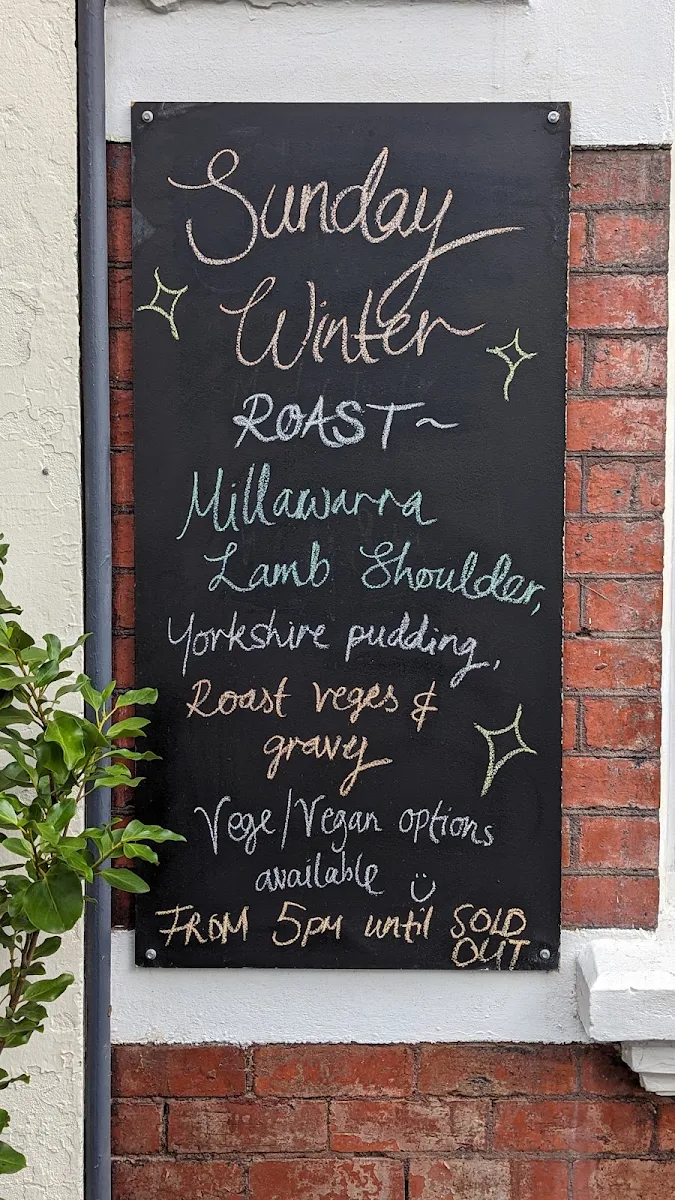 Sunday
Winter
ROAST~
Millawarra
Lamb Shoulder,
Yorkshire pudding,
Roast veges &
gravy
Vege/Vegan options
available ☺
FROM 5pm until SOLD
OUT